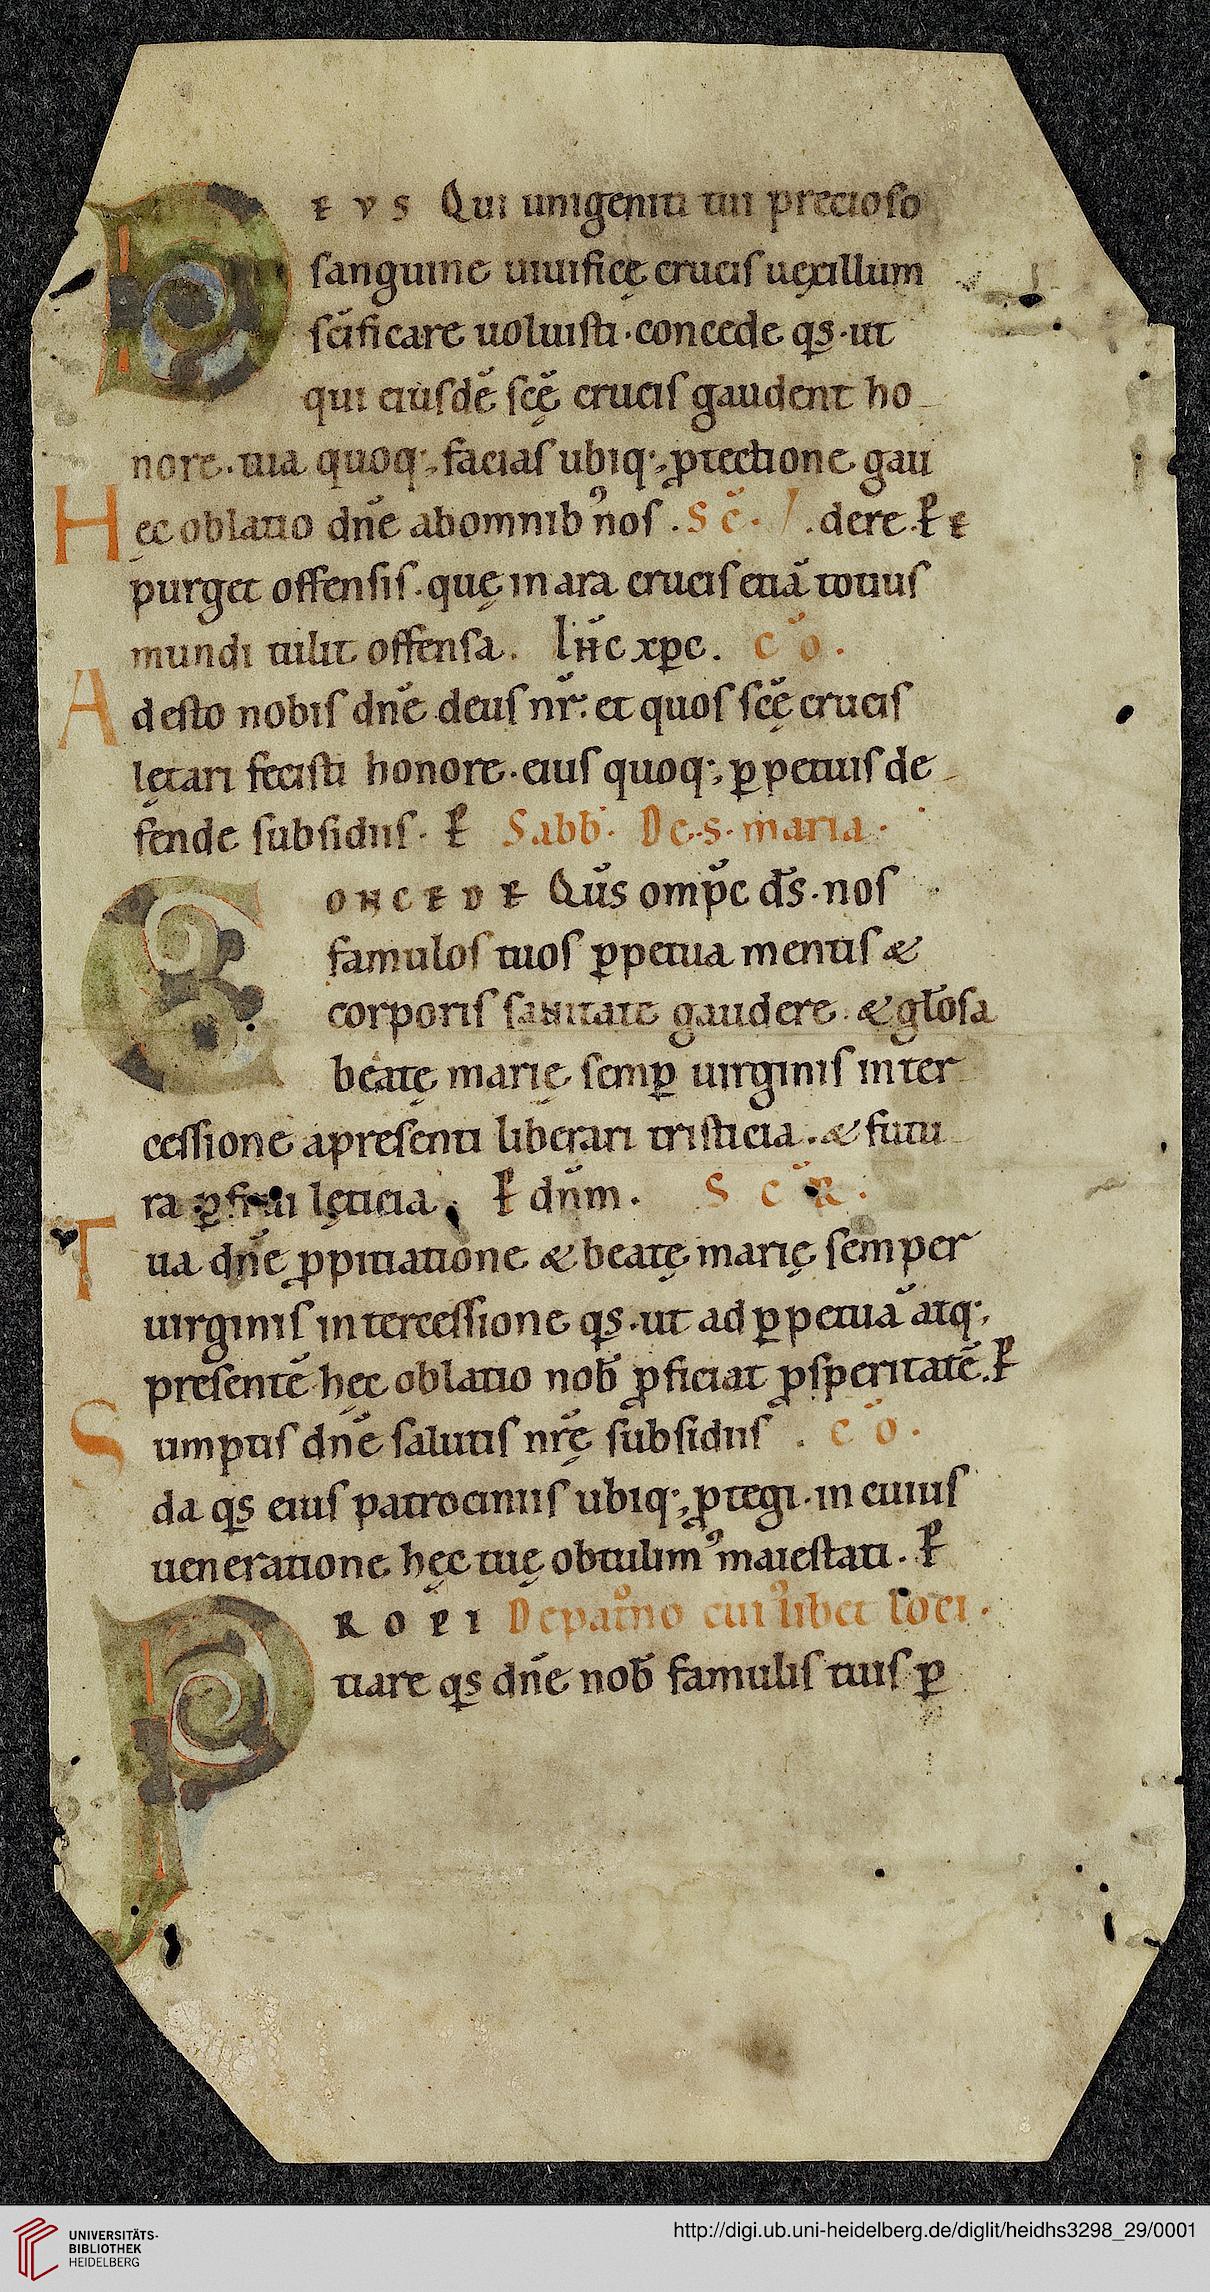 DEVS Qui unigeniti tui precioso
sanguine uiuificę crucis uexillum
scīficare uoluisti · concede qs̄ · ut
qui eiusdē scę̄ crucis gaudent ho
nore · tua quoq; facias ubiq; ꝓtectione gau
Hęc oblatio dn̄e ab omnibꝰ nos . SC̄ . dere . P
purget offensis · quę in ara crucis etiā totius
mundi tulit offensa . xp̄c . CŌ .
Adesto nobis dn̄e deus nr̄ : et quos scę̄ crucis
lętari fecisti honore · eius quoq; ꝑpetuis de
fende subsidiis · P Sabb · De · s · maria ·
CONCEDE Qūs omp̄c ds̄ · nos
famulos tuos ꝑpetua mentis &
corporis sanitate gaudere · & gl̄osa
beatę marię semꝑ uirginis inter
cessione a presenti liberari tristicia . & futu
ra ꝑfrui lęticia . P dn̄m . SCR̄ .
Tua dn̄e ꝓpitiatione & beatę marię semper
uirginis intercessione qs̄ · ut ad ꝑpetuā atq;
presentē hęc oblatio nob̄ ꝓficiat ꝓsperitatē . P
Sumptis dn̄e salutis nrę̄ subsidiis . CŌ .
da qs̄ eius patrociniis ubiq; ꝓtegi · in cuius
ueneratione hęc tuę obtulimꝰ maiestati . P
PROPI De pat̄no cuiꝰlibet loci ·
tiare qs̄ dn̄e nob̄ famulis tuis ꝑ
UNIVERSITÄTS-
BIBLIOTHEK
HEIDELBERG
http://digi.ub.uni-heidelberg.de/diglit/heidhs3298_29/0001